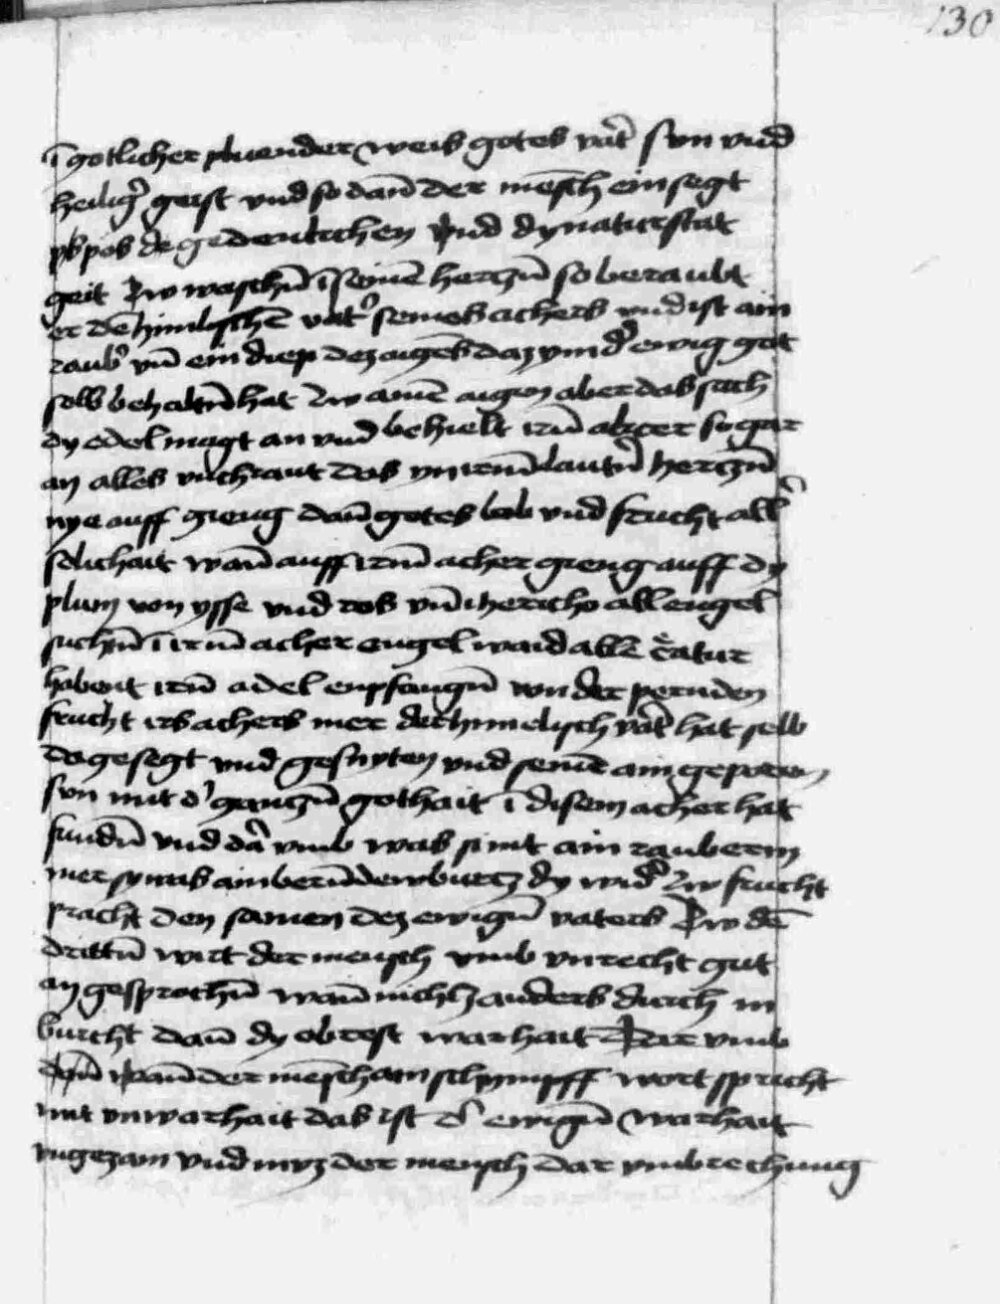 130
ī gotlicher pluender weis gotes vat̉ sun vnd
heilig̉ geist vnd so dan̄ der mēsch ein segt
pos gedenkchen vnd dy stat
geit zw waschn̄ ī seinē herczn̄ so beraubt
er dē himlischē vat̉ seines achers vnd ist ain
raub̉ vn̄ ein diep dez aigēs daz ym d̉ ewig got
selb behaltn̄ hat zw ainē aigen aber das sach
dy edel magt an vnd behielt irn̄ akcer so gar
an alles vnchraut das yn irem lautn̄ herczn̄
nye auff gieng dan̄ gotes lob vnd frucht all̉
selichait wan̄ auff irm̄ acher gieng auff dy
plum von ysse vnd ros vn̄ ihericho all engel
suchn̄ ī irm̄ acher engel waid alle c̄atur
habent irn̄ adel enpfangn̄ von der
frucht irs achers mer der himelisch vat̉ hat selb
do gesegt vnd gesnyten vnd seinē ain geporen
sun mit d̉ ganczn̄ gothait ī disem acher hat
fundn̄ vnd dar̉ vmb was si nit ain rauberin
mer sy was ain dy wid̉ zw frucht
pracht den samen dez ewign̄ vaters Zw dē
drittn̄ wirt der mensch vmb vnrecht gut
an gesprochn̄ wan̄ nichtz anders durch in
burcht dan̄ dy obrest warhait Dar vmb
wan̄ der mēsch ain schimpff wort spricht
mit vnwarhait das ist d̉ ewign̄ warhait
vngezam vnd muz der mensch dar vmb rechnung